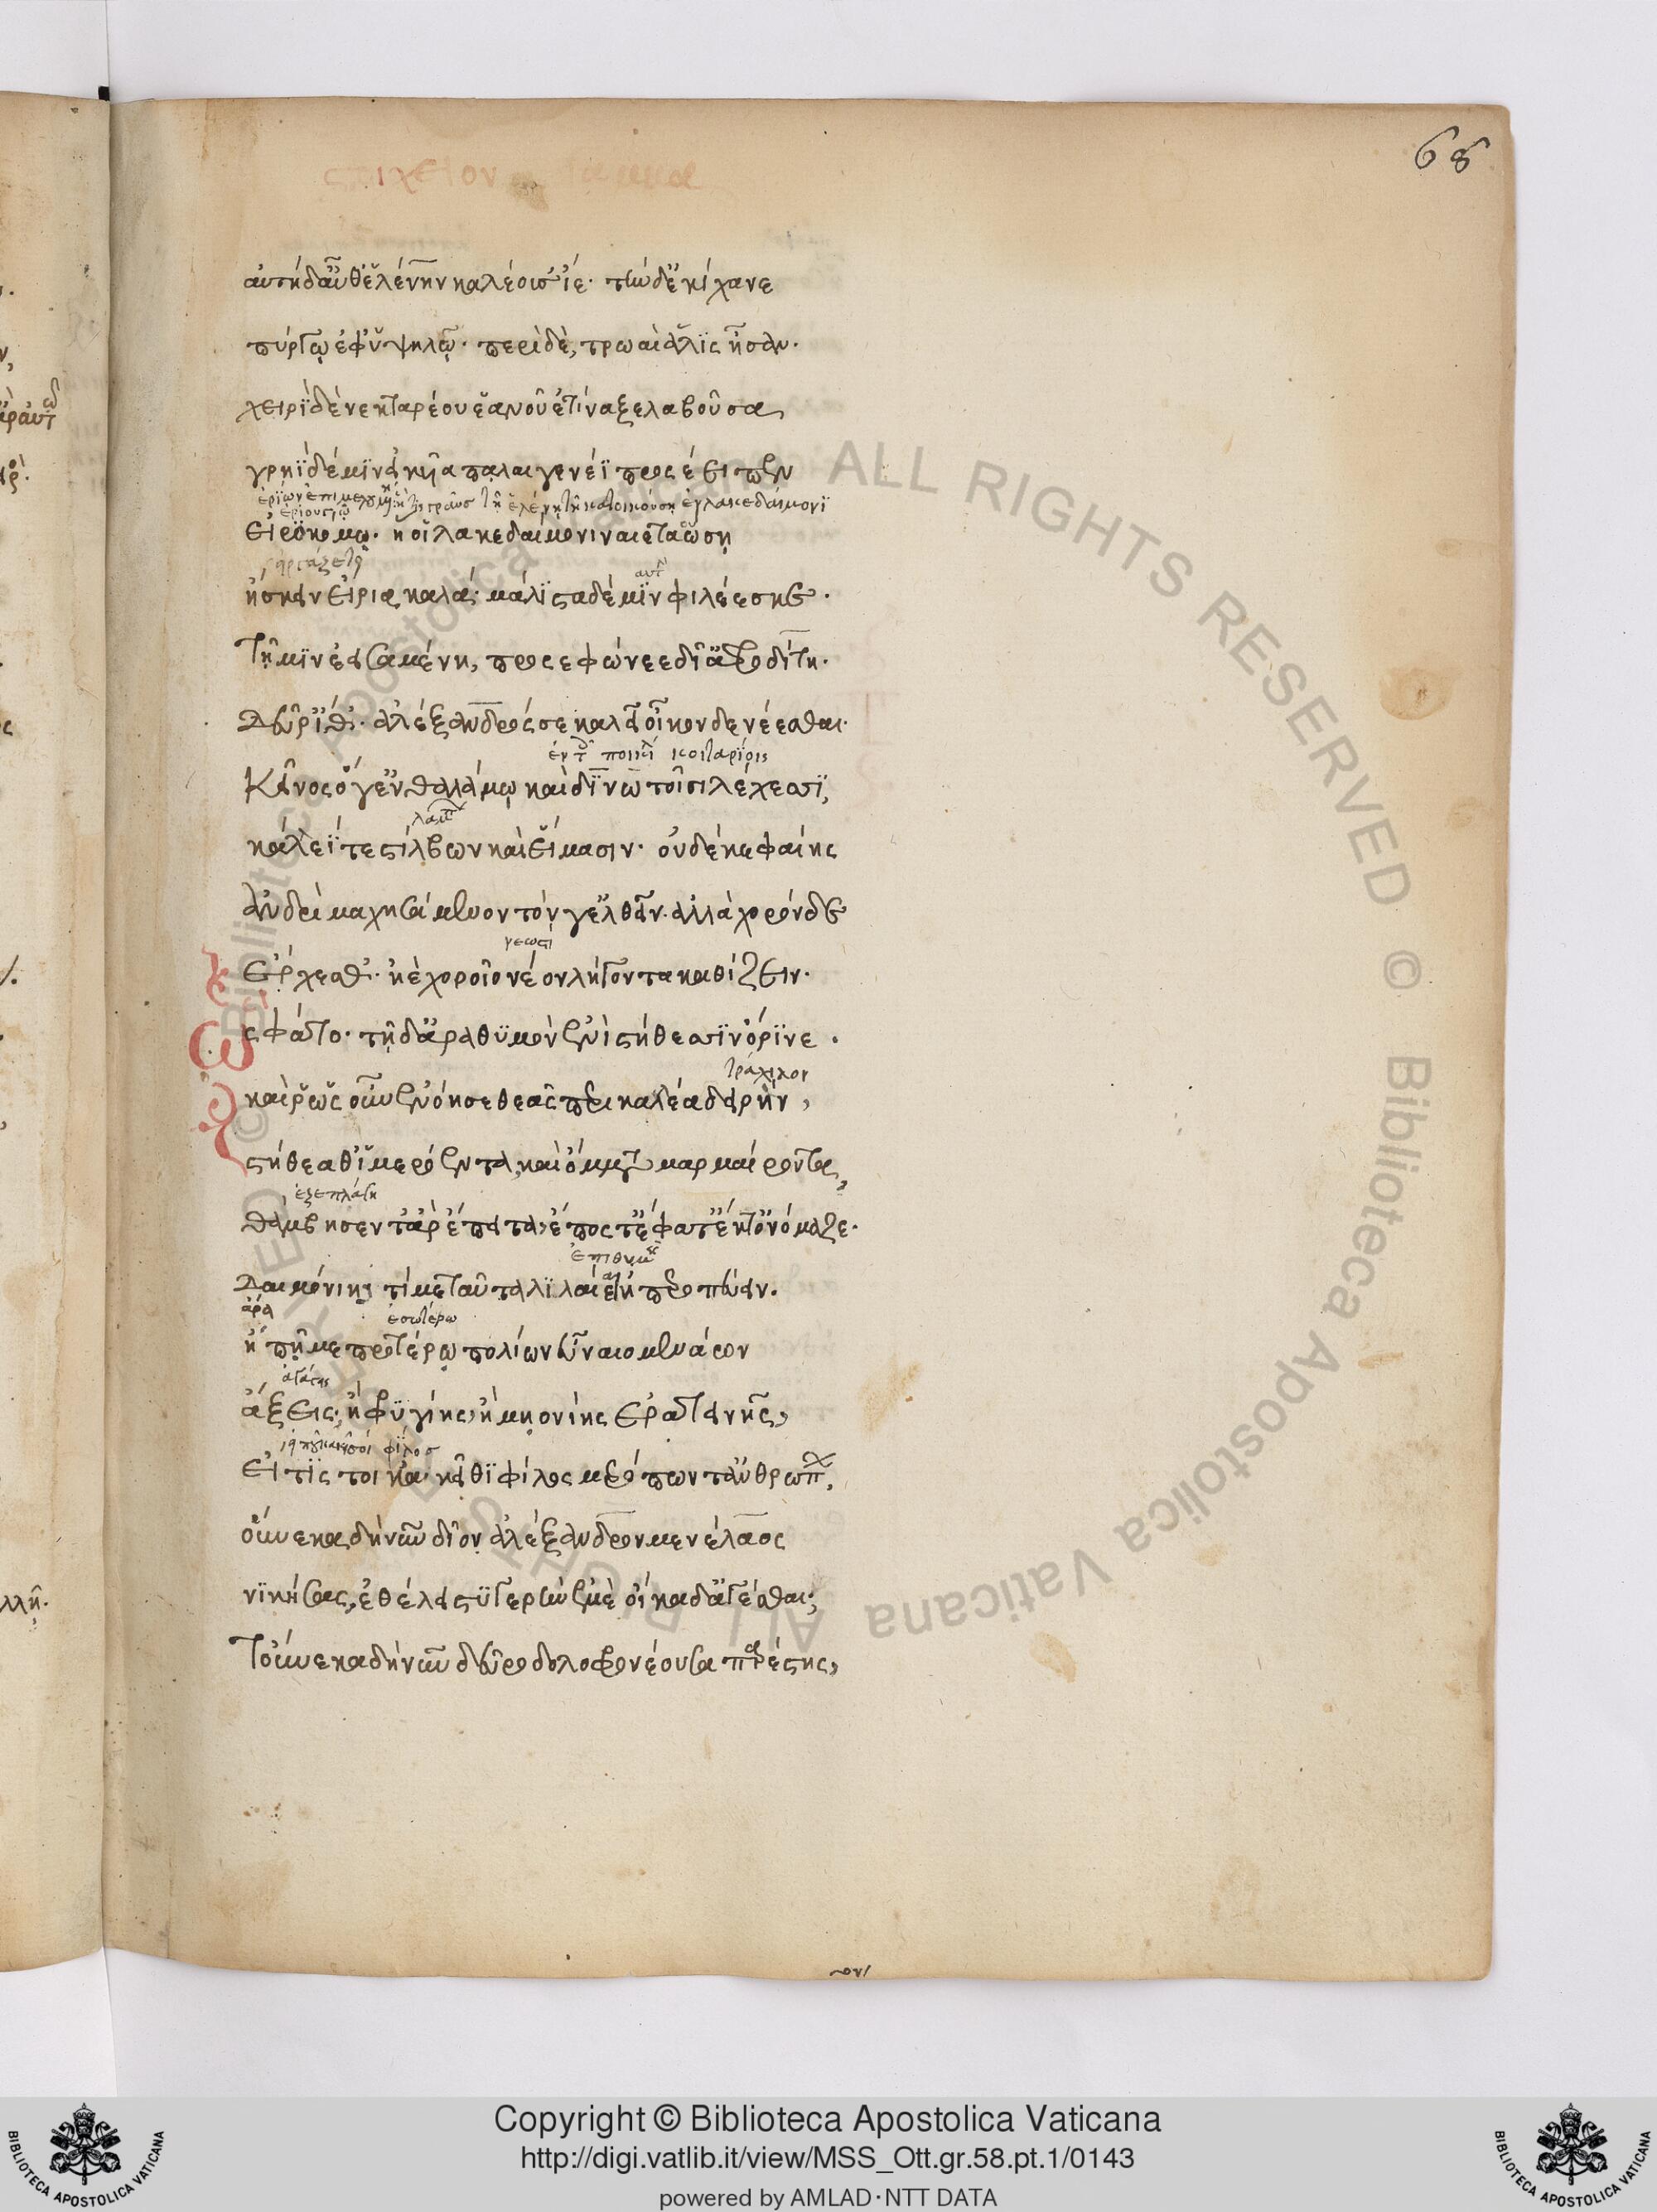 68
αὐτὴ δ' αὖθ' ἑλένην καλέουσ' ἴε· τὴν δ' ἐκίχανε
πύργω ἐφ' ὑψηλῶ· περὶ δὲ, τρωαὶ ἅλις ἦσαν·
χειρὶ δὲ νεκταρέου ἑανοῦ ἐτίναξε λαβοῦσα,
γρηῒ δέ μιν ἀϊκυῖα παλαιγενέϊ προσέειπεν
τῆ ἑλένη τῆ κατοικούση ἐν λακεδαίμονι
εἰροκόμω· ἥ οἱ λακεδαίμονι ναιεταώση
ἤσκειν εἴρια καλά· μάλιστα δέ μιν φιλέεσκε·
τῆ μιν ἐεισαμένη, προσεφώνεε δῖ' ἀφροδίτη·
δεῦρ' ἴθ'· ἀλέξανδρός σε καλεῖ οἶκον δε νέεσθαι·
κεῖνος ὅγ' ἐν θαλάμω καὶ δινωτοῖσι λέχεσσι,
κάλλεΐ τε στίλβων καὶ εἵμασιν· οὐδέ κε φαίης
ἀνδρὶ μαχησάμενον τόν γ' ἐλθεῖν· ἀλλὰ χορόνδε
νεωστὶ
ἔρχεσθ'· ἠὲ χοροῖο νέον λήγοντα καθίζειν·
ὣς φάτο· τῆ δ' ἄρα θυμὸν ἐνὶ στήθεσσιν ὄρινε·
τράχηλον
καὶ ῥ' ὡς οὖν ἐνόησε θεᾶς περικαλλέα δειρὴν,
στήθεά θ' ἱμερόεντα, καὶ ὄμματα μαρμαίροντα,
ἐξεπλάγη
θάμβησεν τ' ἄρ' ἔπειτα, ἔπος τ' ἔφατ' ἔκ τ' ὀνόμαζε·
δαιμονίη· τί με ταῦτα λιλαίεαι ἠπεροπεύειν·
ἆρα ἐσωτέρω
ἤ πη με προτέρω πολίων εὖ ναιομενάων
ἄξεις· ἢ φρυγίης, ἢ μηονίης ἐρατεινῆς,
εἴ τίς τοι καὶ κεῖθι φίλος μερόπων ἀνθρώπων,
οὕνεκα δὴ νῦν δῖον ἀλέξανδρον μενέλαος
νικήσας, ἐθέλει στυγερὴν ἐμὲ οἴκαδ' ἄγεσθαι;
τοὔνεκα δὴ νῦν δεῦρο δολοφρονέουσα παρέστης,
ALL RIGHTS RESERVED © Biblioteca Apostolica Vaticana
Copyright © Biblioteca Apostolica Vaticana
http://digi.vatlib.it/view/MSS_Ott.gr.58.pt.1/0143
powered by AMLAD·NTT DATA
BIBLIOTECA APOSTOLICA VATICANA
BIBLIOTECA APOSTOLICA VATICANA